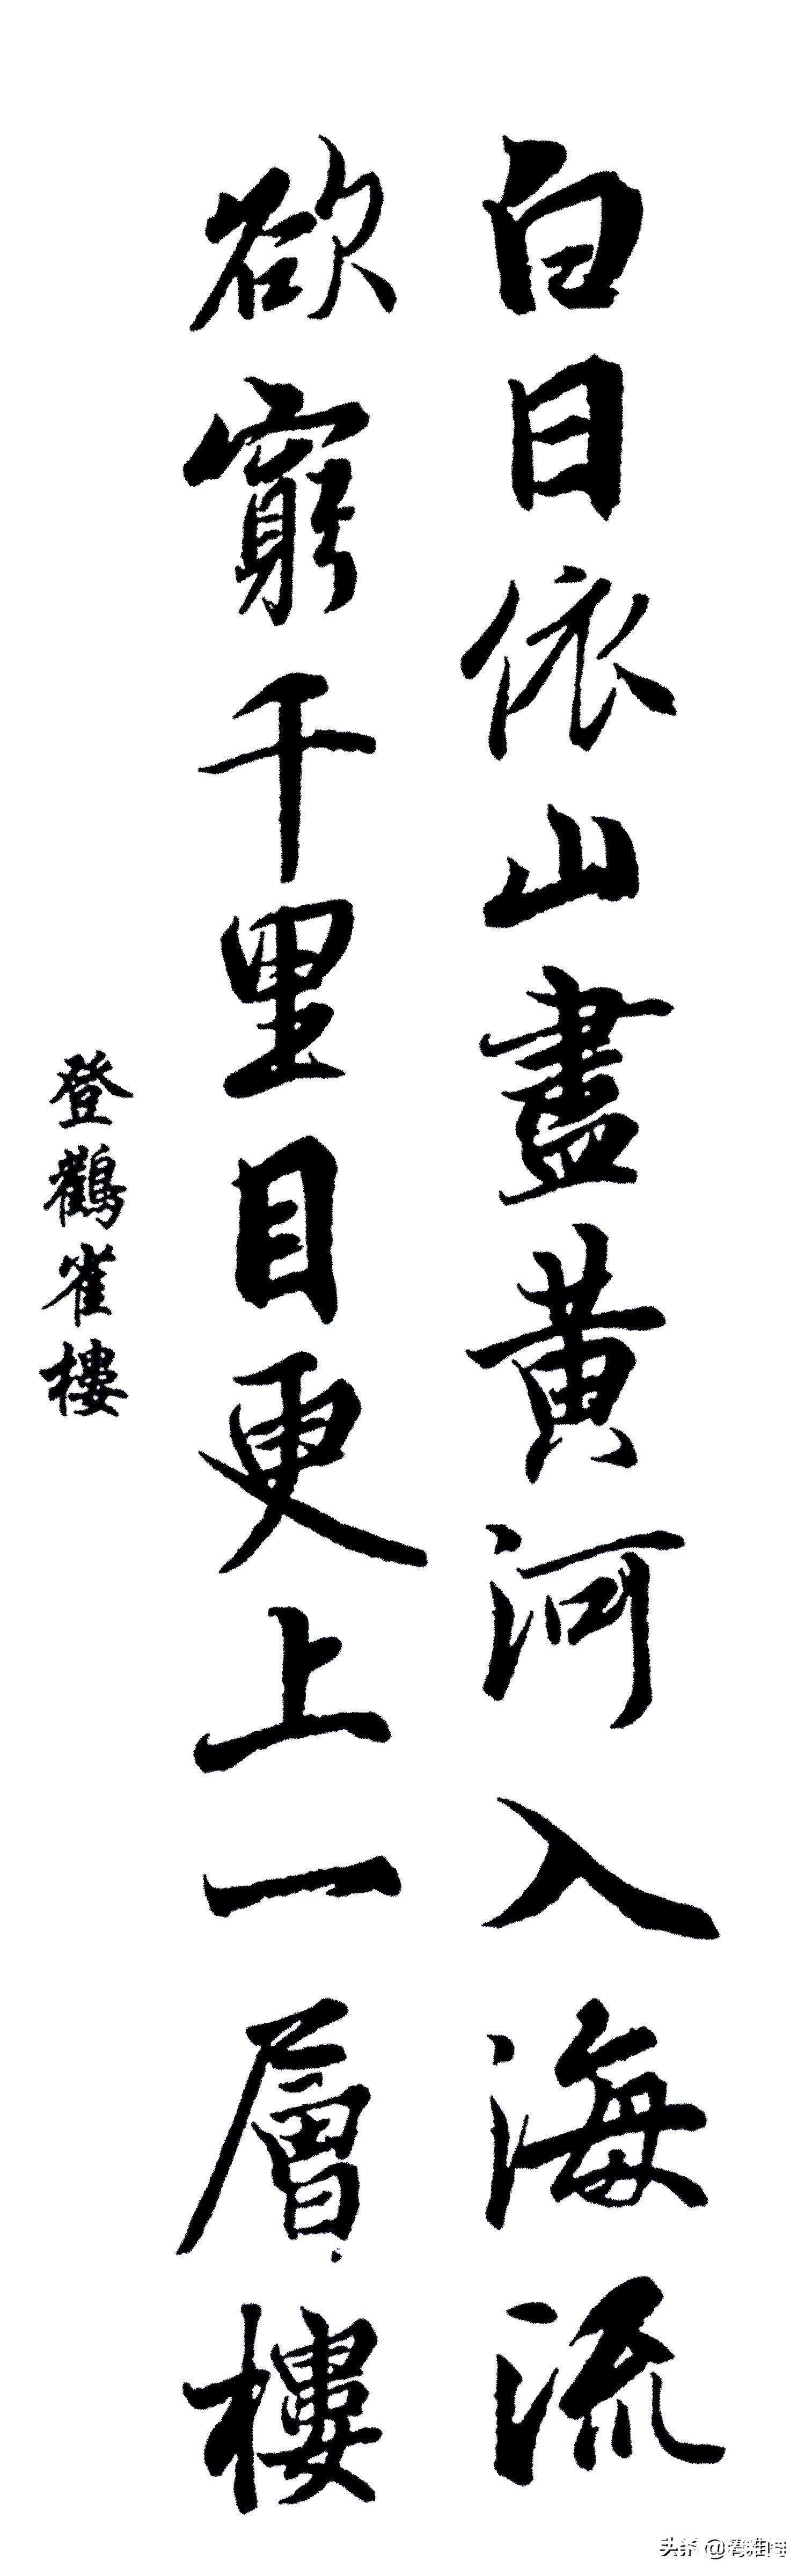 白日依山盡黃河入海流
欲窮千里目更上一層樓
登鸛雀樓
头条